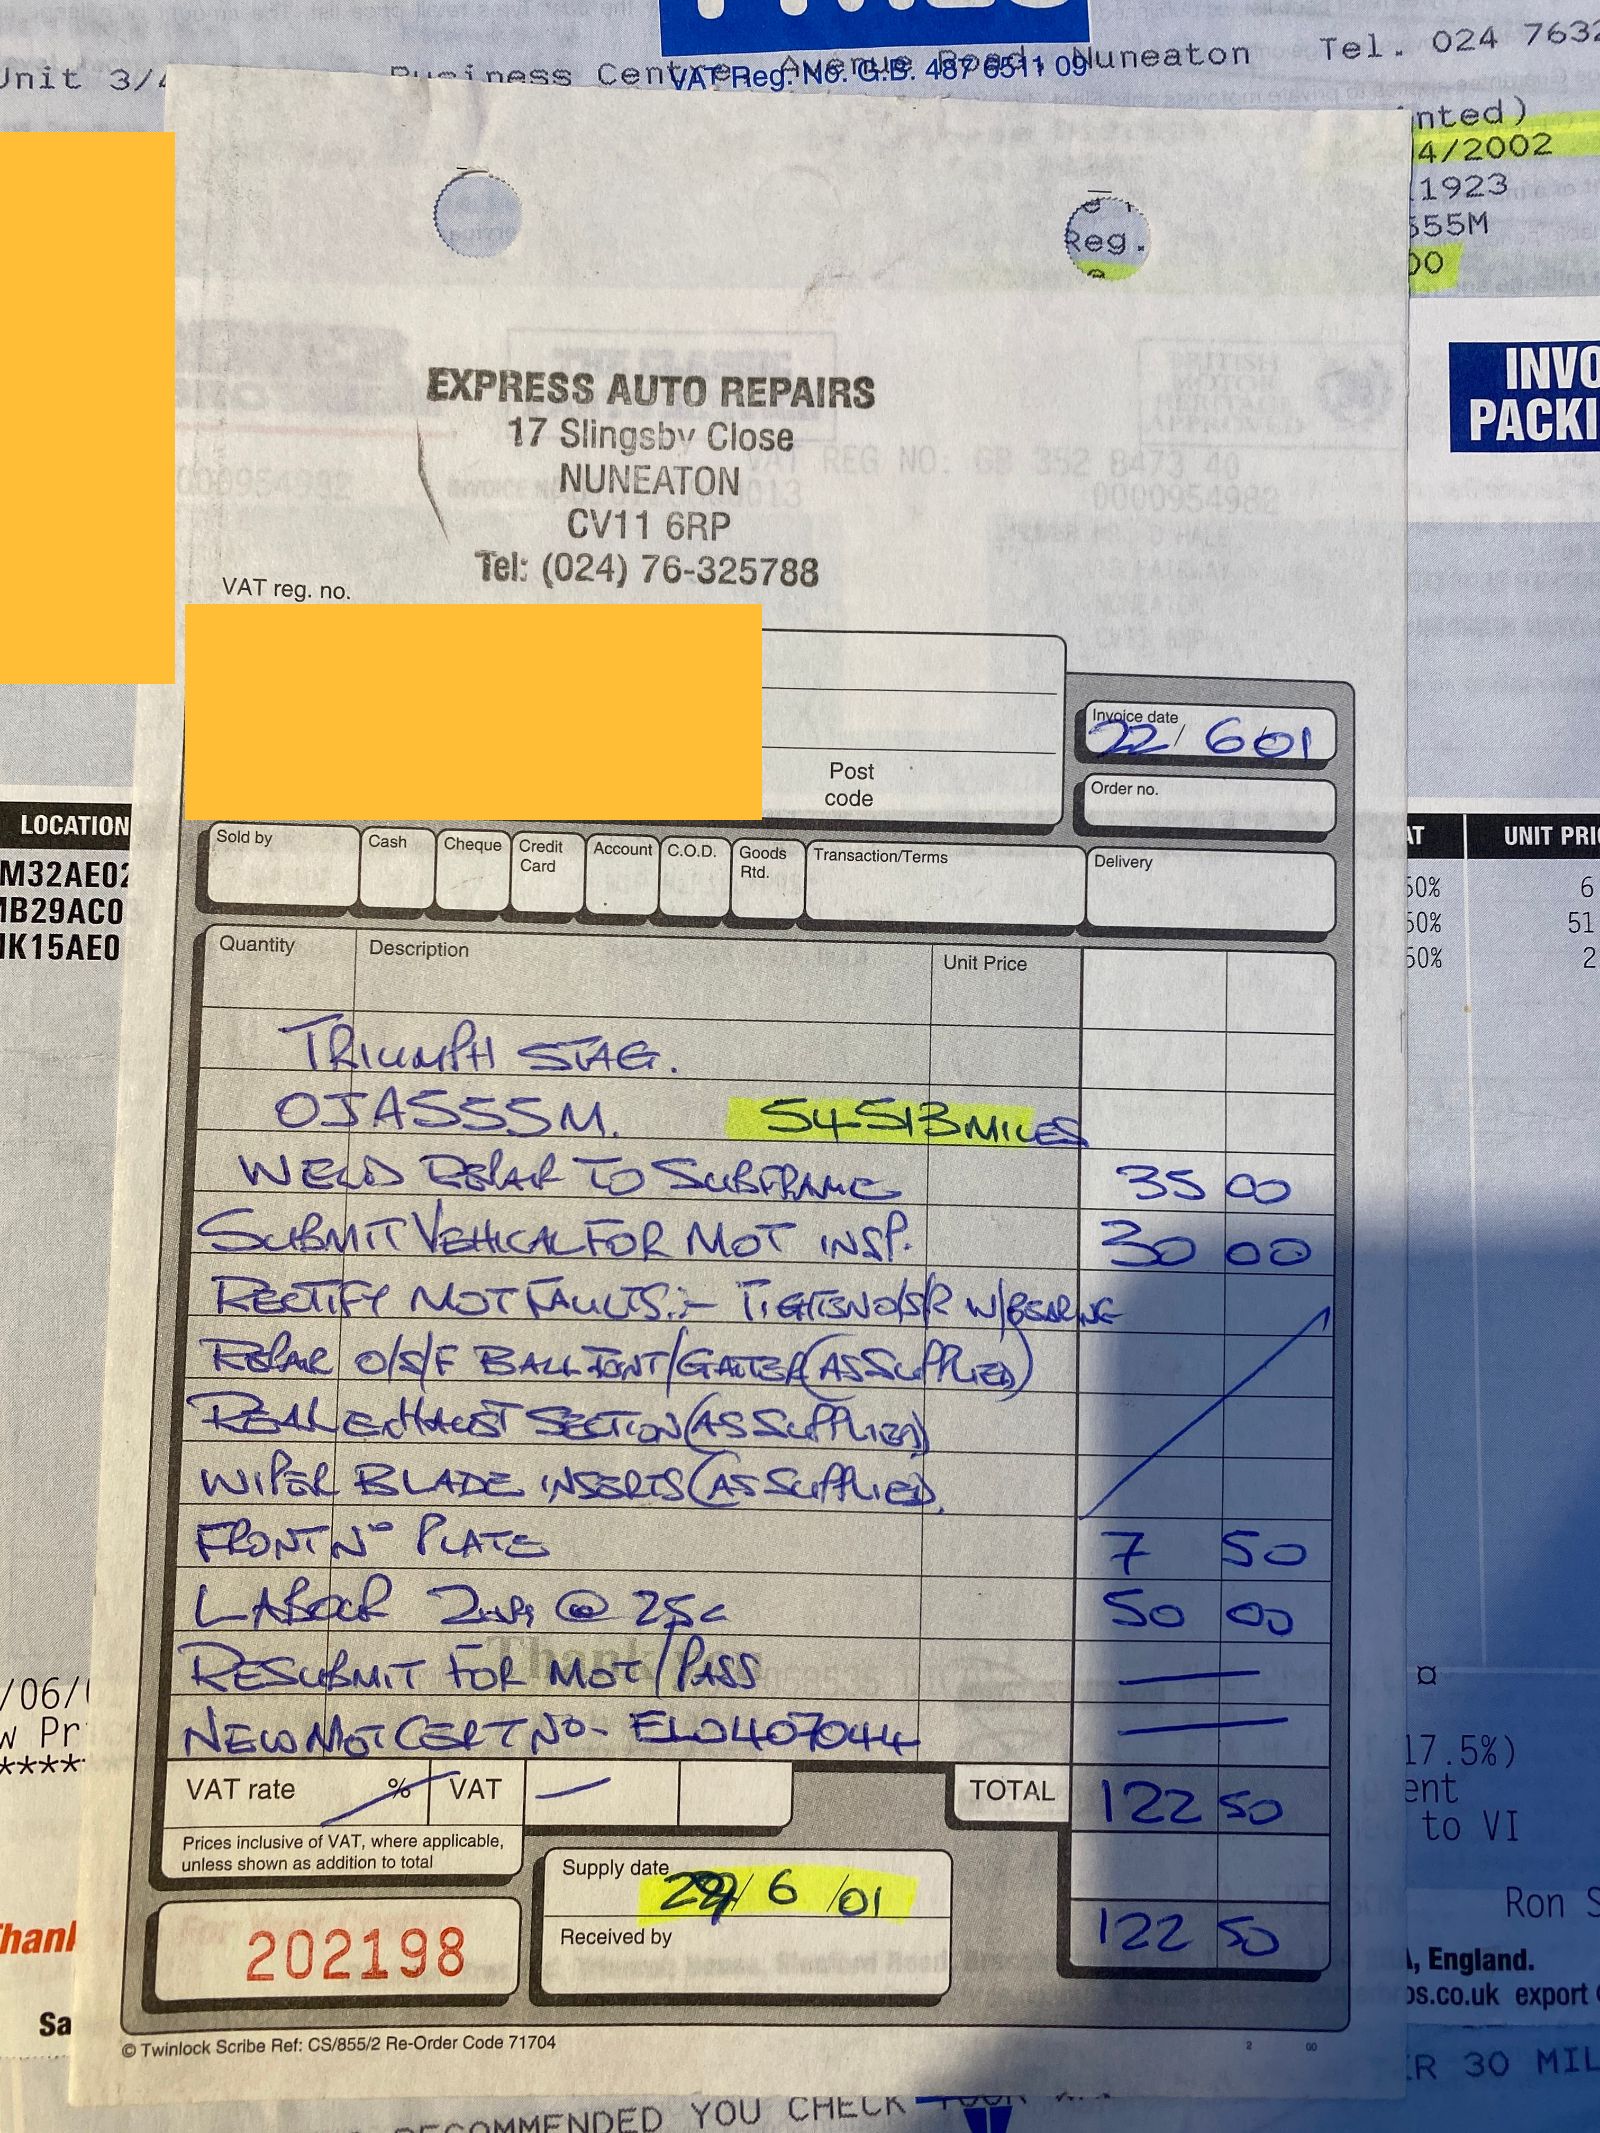 Unit 3/4 Business Centre, Avenue Road, Nuneaton Tel. 024 7632
VAT Reg. No. G.B. 487 6511 09
nted)
4/2002
11923
555M
00
Reg.
INVO
PACKI
EXPRESS AUTO REPAIRS
17 Slingsby Close
NUNEATON
CV11 6RP
Tel: (024) 76-325788
VAT REG NO: GB 352 8473 40
0000954982
VAT reg. no.
Invoice date 22/6/01
Post code
Order no.
Sold by Cash Cheque Credit Card Account C.O.D. Goods Rtd. Transaction/Terms Delivery
LOCATION
M32AE02
MB29AC0
MK15AE0
AT UNIT PRI
50% 6
50% 51
50% 2
Quantity Description Unit Price
TRIUMPH STAG.
OJA555M. 54513 MILES
WELD REPAIR TO SUBFRAME 35 00
SUBMIT VEHICAL FOR MOT INSP. 30 00
RECTIFY MOT FAULTS:- TIGHTEN O/S/R W/BEARING
REPAIR O/S/F BALL JOINT/GAITER (AS SUPPLIED)
REAR EXHAUST SECTION (AS SUPPLIED)
WIPER BLADE INSERTS (AS SUPPLIED).
FRONT No PLATE 7 50
LABOUR 2 HRS @ 25£ 50 00
RESUBMIT FOR MOT/PASS —
NEW MOT CERT No- EL0407044 —
VAT rate % VAT — TOTAL 122 50
Prices inclusive of VAT, where applicable,
unless shown as addition to total
Supply date 29/6/01
Received by
122 50
202198
© Twinlock Scribe Ref: CS/855/2 Re-Order Code 71704
2 00
/06/
w Pr
****
Thank
Sa
¤
17.5%)
ent
to VI
Ron S
A, England.
os.co.uk export
ER 30 MIL
RECOMMENDED YOU CHECK YOUR